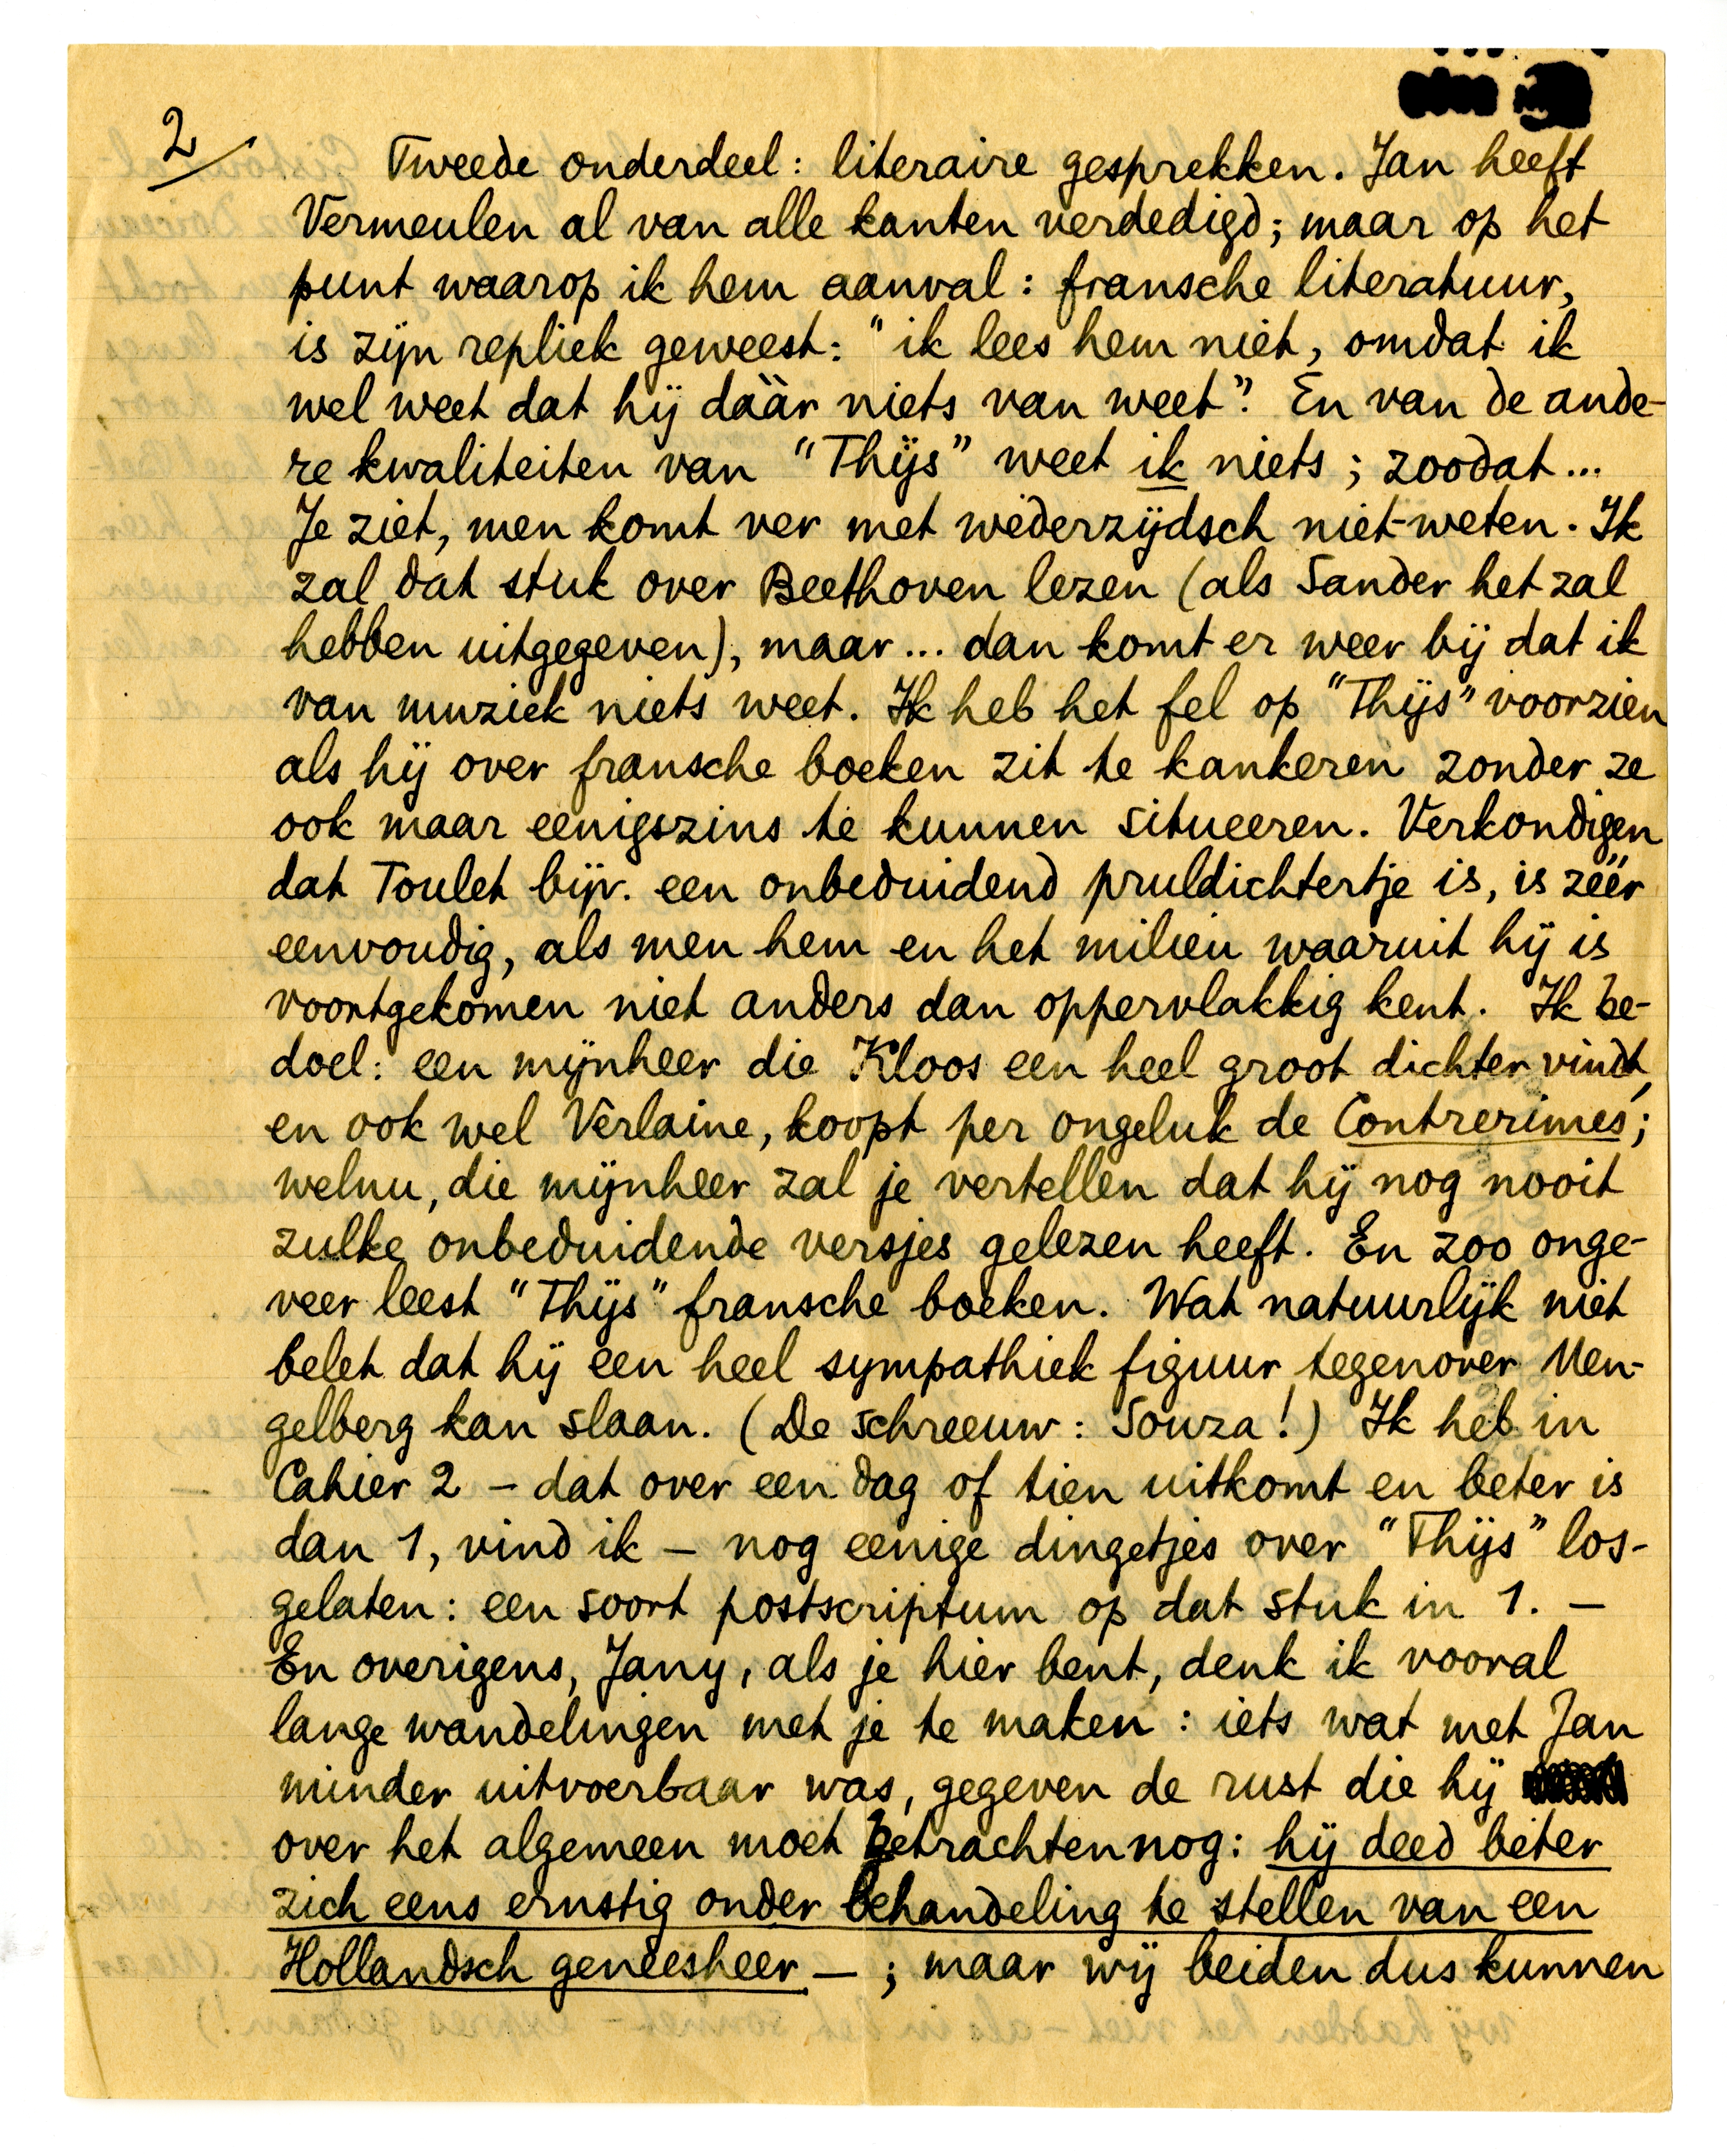 2/
Tweede onderdeel: literaire gesprekken. Jan heeft
Vermeulen al van alle kanten verdedigd; maar op het
punt waarop ik hem aanval: fransche literatuur,
is zijn repliek geweest: "ik lees hem niet, omdat ik
wel weet dat hij dààr niets van weet". En van de ande-
re kwaliteiten van "Thijs" weet ik niets; zoodat...
Je ziet, men komt ver met wederzijdsch niet-weten. Ik
zal dat stuk over Beethoven lezen (als Sander het zal
hebben uitgegeven), maar... dan komt er weer bij dat ik
van muziek niets weet. Ik heb het fel op "Thijs" voorzien
als hij over fransche boeken zit te kankeren zonder ze
ook maar eenigszins te kunnen situeeren. Verkondigen
dat Toulet bijv. een onbeduidend pruldichtertje is, is zéér
eenvoudig, als men hem en het milieu waaruit hij is
voortgekomen niet anders dan oppervlakkig kent. Ik be-
doel: een mijnheer die Kloos een heel groot dichter vindt,
en ook wel Verlaine, koopt per ongeluk de Contrerimes;
welnu, die mijnheer zal je vertellen dat hij nog nooit
zulke onbeduidende versjes gelezen heeft. En zoo onge-
veer leest "Thijs" fransche boeken. Wat natuurlijk niet
belet dat hij een heel sympathiek figuur tegenover Men-
gelberg kan slaan. (De schreeuw: Souza!) Ik heb in
Cahier 2 – dat over een dag of tien uitkomt en beter is
dan 1, vind ik – nog eenige dingetjes over "Thijs" los-
gelaten: een soort postscriptum op dat stuk in 1. –
En overigens, Jany, als je hier bent, denk ik vooral
lange wandelingen met je te maken: iets wat met Jan
minder uitvoerbaar was, gegeven de rust die hij
over het algemeen moet betrachten nog: hij deed beter
zich eens ernstig onder behandeling te stellen van een
Hollandsch geneesheer – ; maar wij beiden dus kunnen